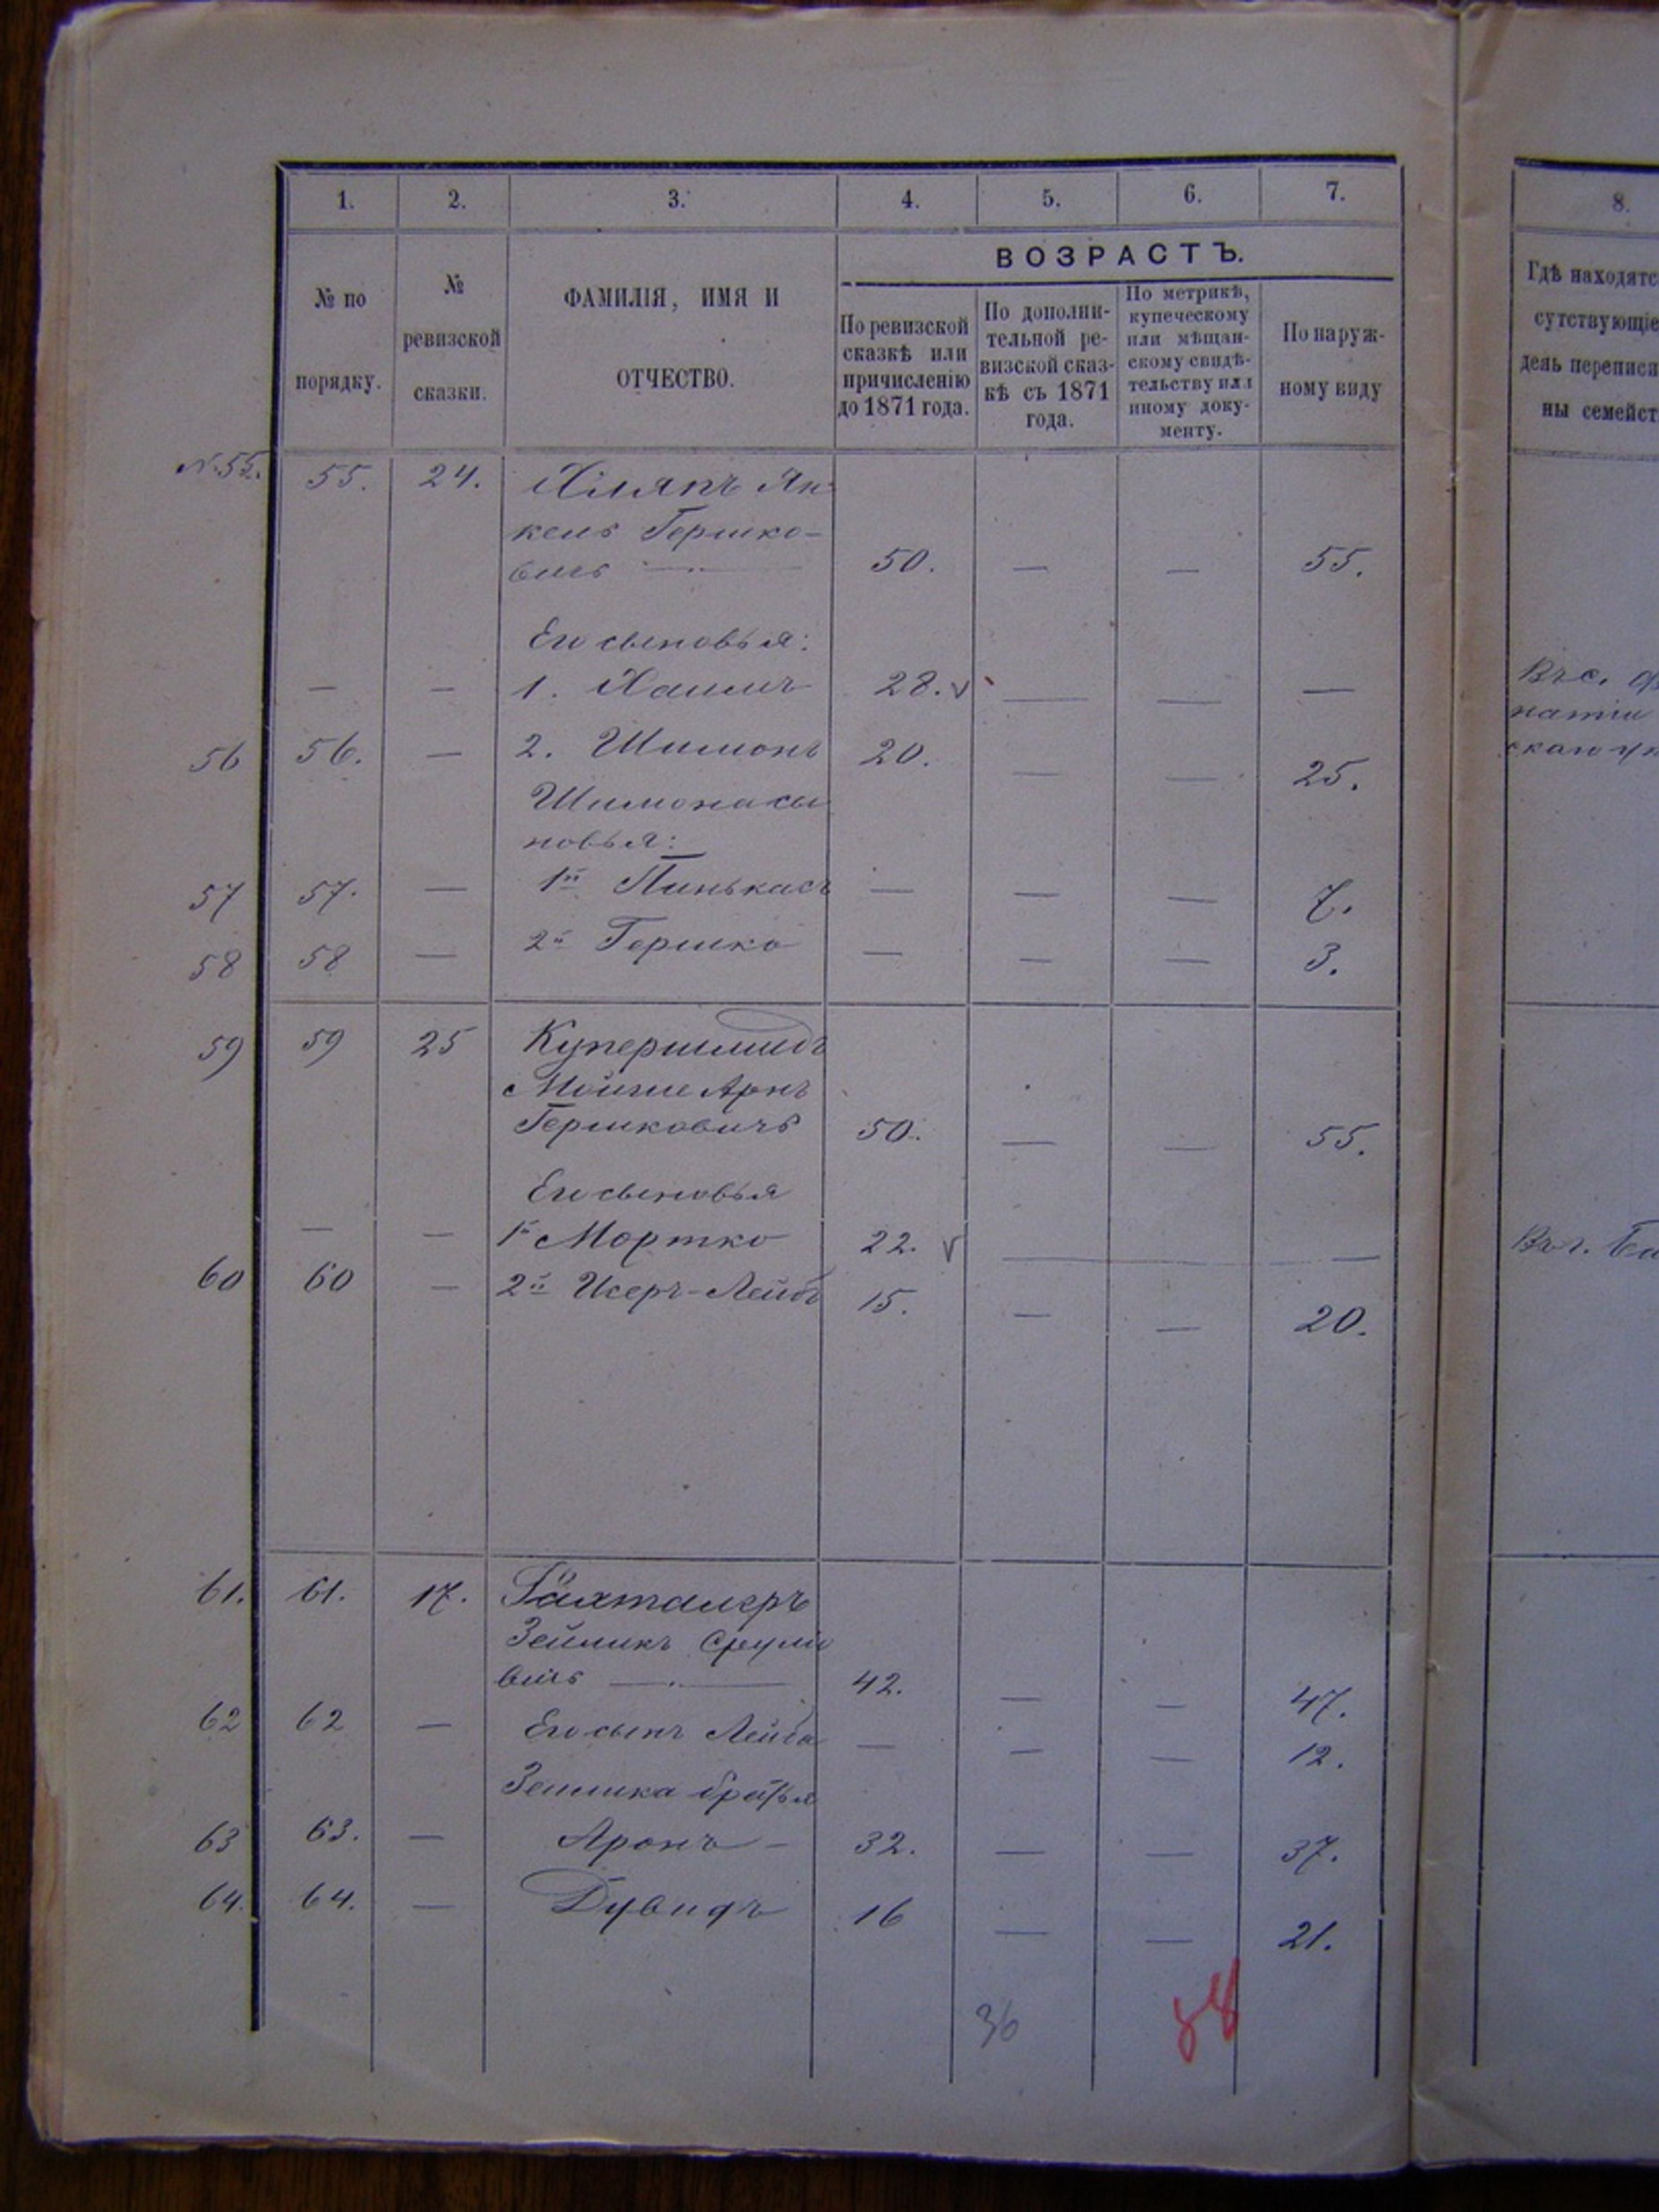 1. 2. 3. 4. 5. 6. 7. 8.
№ по порядку.
№ ревизской сказки.
ФАМИЛІЯ, ИМЯ И
ОТЧЕСТВО.
ВОЗРАСТЪ.
По ревизской
сказкѣ или
причисленію
до 1871 года.
По дополни-
тельной ре-
визской сказ-
кѣ съ 1871
года.
По метрикѣ,
купеческому
или мѣщан-
скому свидѣ-
тельству или
иному доку-
менту.
По наруж-
ному виду
Гдѣ находятс
сутствующіе
день переписи
ны семейст
№ 55. 55. 24. Ян-
кель Гершко-
вичъ 50. — — 55.
Его сыновья:
— — 1. Хаимъ 28. v — — —
Въ с.
56 56. — 2. Шимонъ 20. — — 25.
Шимона сы
новья:
57 57. — 1й Пинькасъ — — — 7.
58 58 — 2й Гершко — — — 3.
59 59 25 Купершмидъ
Мойше Аронъ
Гершковичъ 50. — — 55.
Его сыновья
— — 1й Мортко 22. v — —
60 60 — 2й Исеръ-Лейбъ 15. — — 20.
61. 61. 17.
Зейликъ Срулио
вичъ 42. — — 47.
62 62 — Его сынъ Лейба — — — 12.
Зейлика братья
63 63. — Аронъ — 32. — — 37.
64. 64. — Дувидъ 16 — — 21.
36